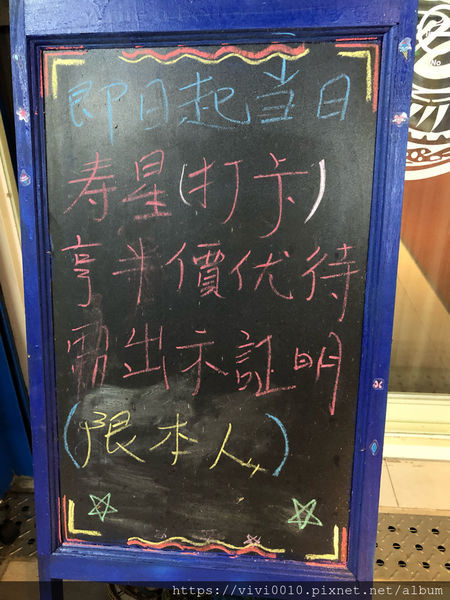 即日起当日
寿星(打卡)
亨半價优待
需出示証明
(限本人)
No
https://vivi0010.pixnet.net/album